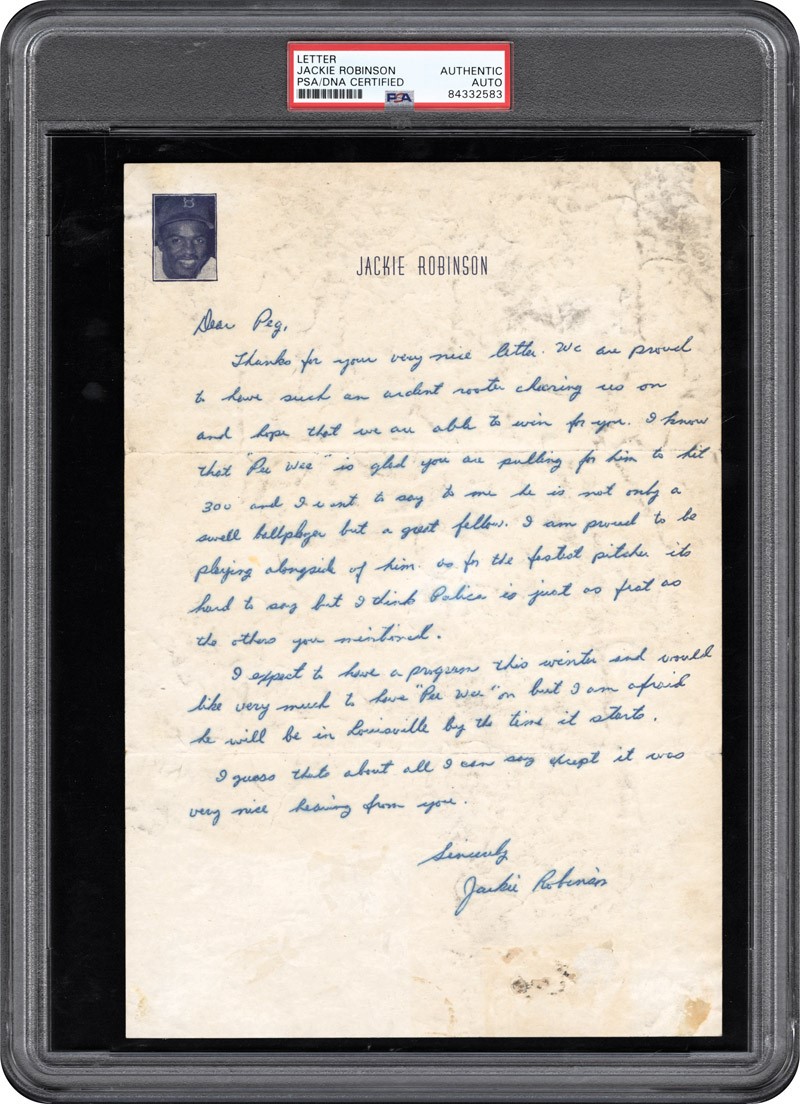 LETTER
JACKIE ROBINSON
PSA/DNA CERTIFIED
AUTHENTIC
AUTO
84332583
PSA
B
JACKIE ROBINSON
Dear Peg,
Thanks for your very nice letter. We are proud
to have such an ardent rooter cheering us on
and hope that we are able to win for you. I know
that "Pee Wee" is glad you are pulling for him to hit
300 and I want to say to me he is not only a
swell ballplayer but a great fellow. I am proud to be
playing alongside of him. as for the fastest pitcher its
hard to say but I think Palica is just as fast as
the others you mentioned.
I expect to have a program this winter and would
like very much to have "Pee Wee" on but I am afraid
he will be in Louisville by the time it starts.
I guess thats about all I can say except it was
very nice hearing from you.
Sincerely
Jackie Robinson